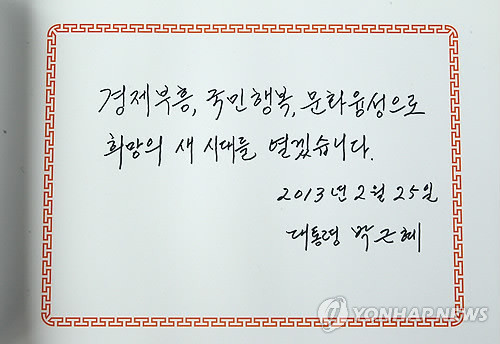 경제부흥, 국민행복, 문화융성으로
희망의 새 시대를 열겠습니다.
2013년 2월 25일
대통령 박근혜
YONHAPNEWS